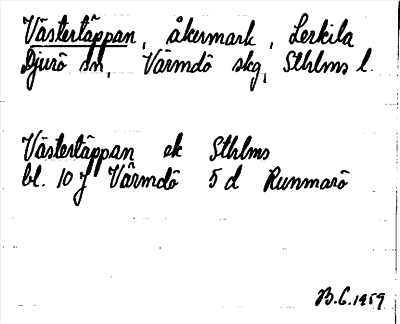 Västertäppan, åkermark, Lerkila
Djurö sn, Värmdö skg, Sthlms l.
Västertäppan ek Sthlms
bl. 10 J Värmdö 5 d Runmarö
B.C. 1959